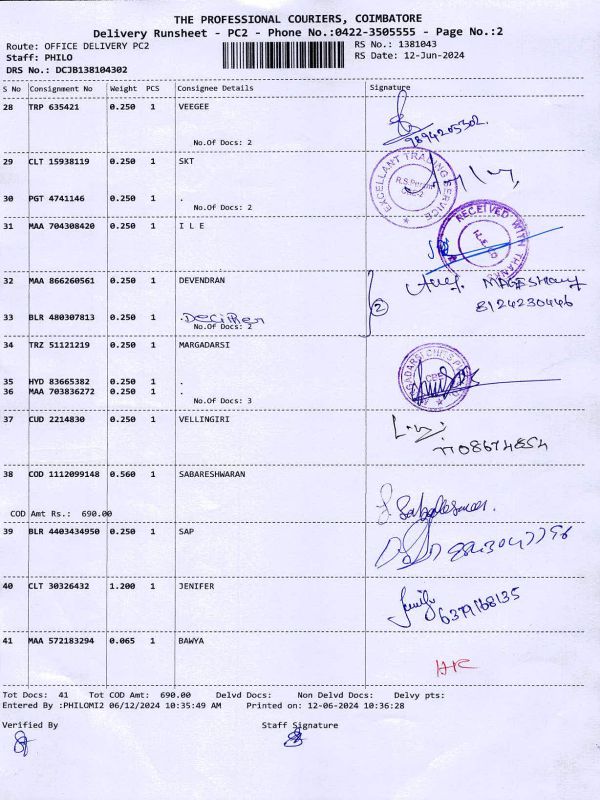 THE PROFESSIONAL COURIERS, COIMBATORE
Delivery Runsheet - PC2 - Phone No.:0422-3505555 - Page No.:2
Route: OFFICE DELIVERY PC2 RS No.: 1381043
Staff: PHILO RS Date: 12-Jun-2024
DRS No.: DCJB138104302
S No Consignment No Weight PCS Consignee Details Signature
28 TRP 635421 0.250 1 VEEGEE
9894205302.
No.Of Docs: 2
29 CLT 15938119 0.250 1 SKT
EXCELLANT TRADING SERVICE
R.S.Puram
CBE-2
30 PGT 4741146 0.250 1
No.Of Docs: 2
31 MAA 704308420 0.250 1 I L E
RECEIVED WITH THANKS
32 MAA 866260561 0.250 1 DEVENDRAN
2
8124230446
33 BLR 480307813 0.250 1
No.Of Docs: 2
34 TRZ 51121219 0.250 1 MARGADARSI
MARGADARSI CHITS
35 HYD 83665382 0.250 1
36 MAA 703836272 0.250 1
No.Of Docs: 3
37 CUD 2214830 0.250 1 VELLINGIRI
38 COD 1112099148 0.560 1 SABARESHWARAN
COD Amt Rs.: 690.00
39 BLR 4403434950 0.250 1 SAP
40 CLT 30326432 1.200 1 JENIFER
6379168135
41 MAA 572183294 0.065 1 BAWYA
Tot Docs: 41 Tot COD Amt: 690.00 Delvd Docs: Non Delvd Docs: Delvy pts:
Entered By :PHILOMI2 06/12/2024 10:35:49 AM Printed on: 12-06-2024 10:36:28
Verified By Staff Signature